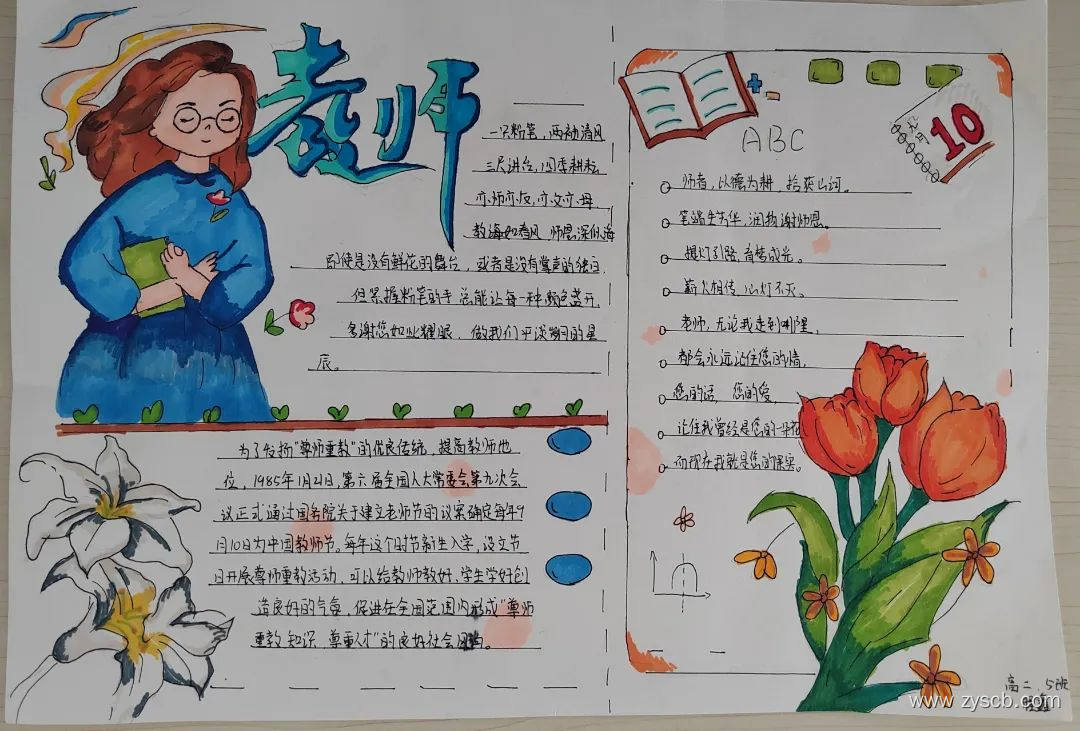 老师
一只粉笔，两袖清风
三尺讲台，四季耕耘
亦师亦友，亦父亦母
教诲如春风，师恩深似海
即使是没有鲜花的舞台，或者是没有掌声的独白，
但紧握粉笔的手总能让每一种颜色盛开，
多谢您如此耀眼，做我们平淡岁月的星
辰。
为了发扬“尊师重教”的优良传统，提高教师地
位，1985年1月21日，第六届全国人大常委会第九次会
议正式通过国务院关于建立老师节的议案确定每年9
月10日为中国教师节。每年这个时节新生入学，设立节
日开展尊师重教活动，可以给教师教好、学生学好创
造良好的气氛，促进在全国范围内形成“尊师
重教 知识、尊重人才”的良好社会风尚。
ABC
九月
10
师者，以德为耕，拾获山河。
笔端生芳华，润物谢师恩。
提灯引路，育梦成光。
薪火相传，心灯不灭。
老师，无论我走到哪里，
都会永远记住您的情，
您的话，您的爱，
让住我曾经是您的一朵花
而现在我就是您的果实。
高二、5班
www.zyscb.com